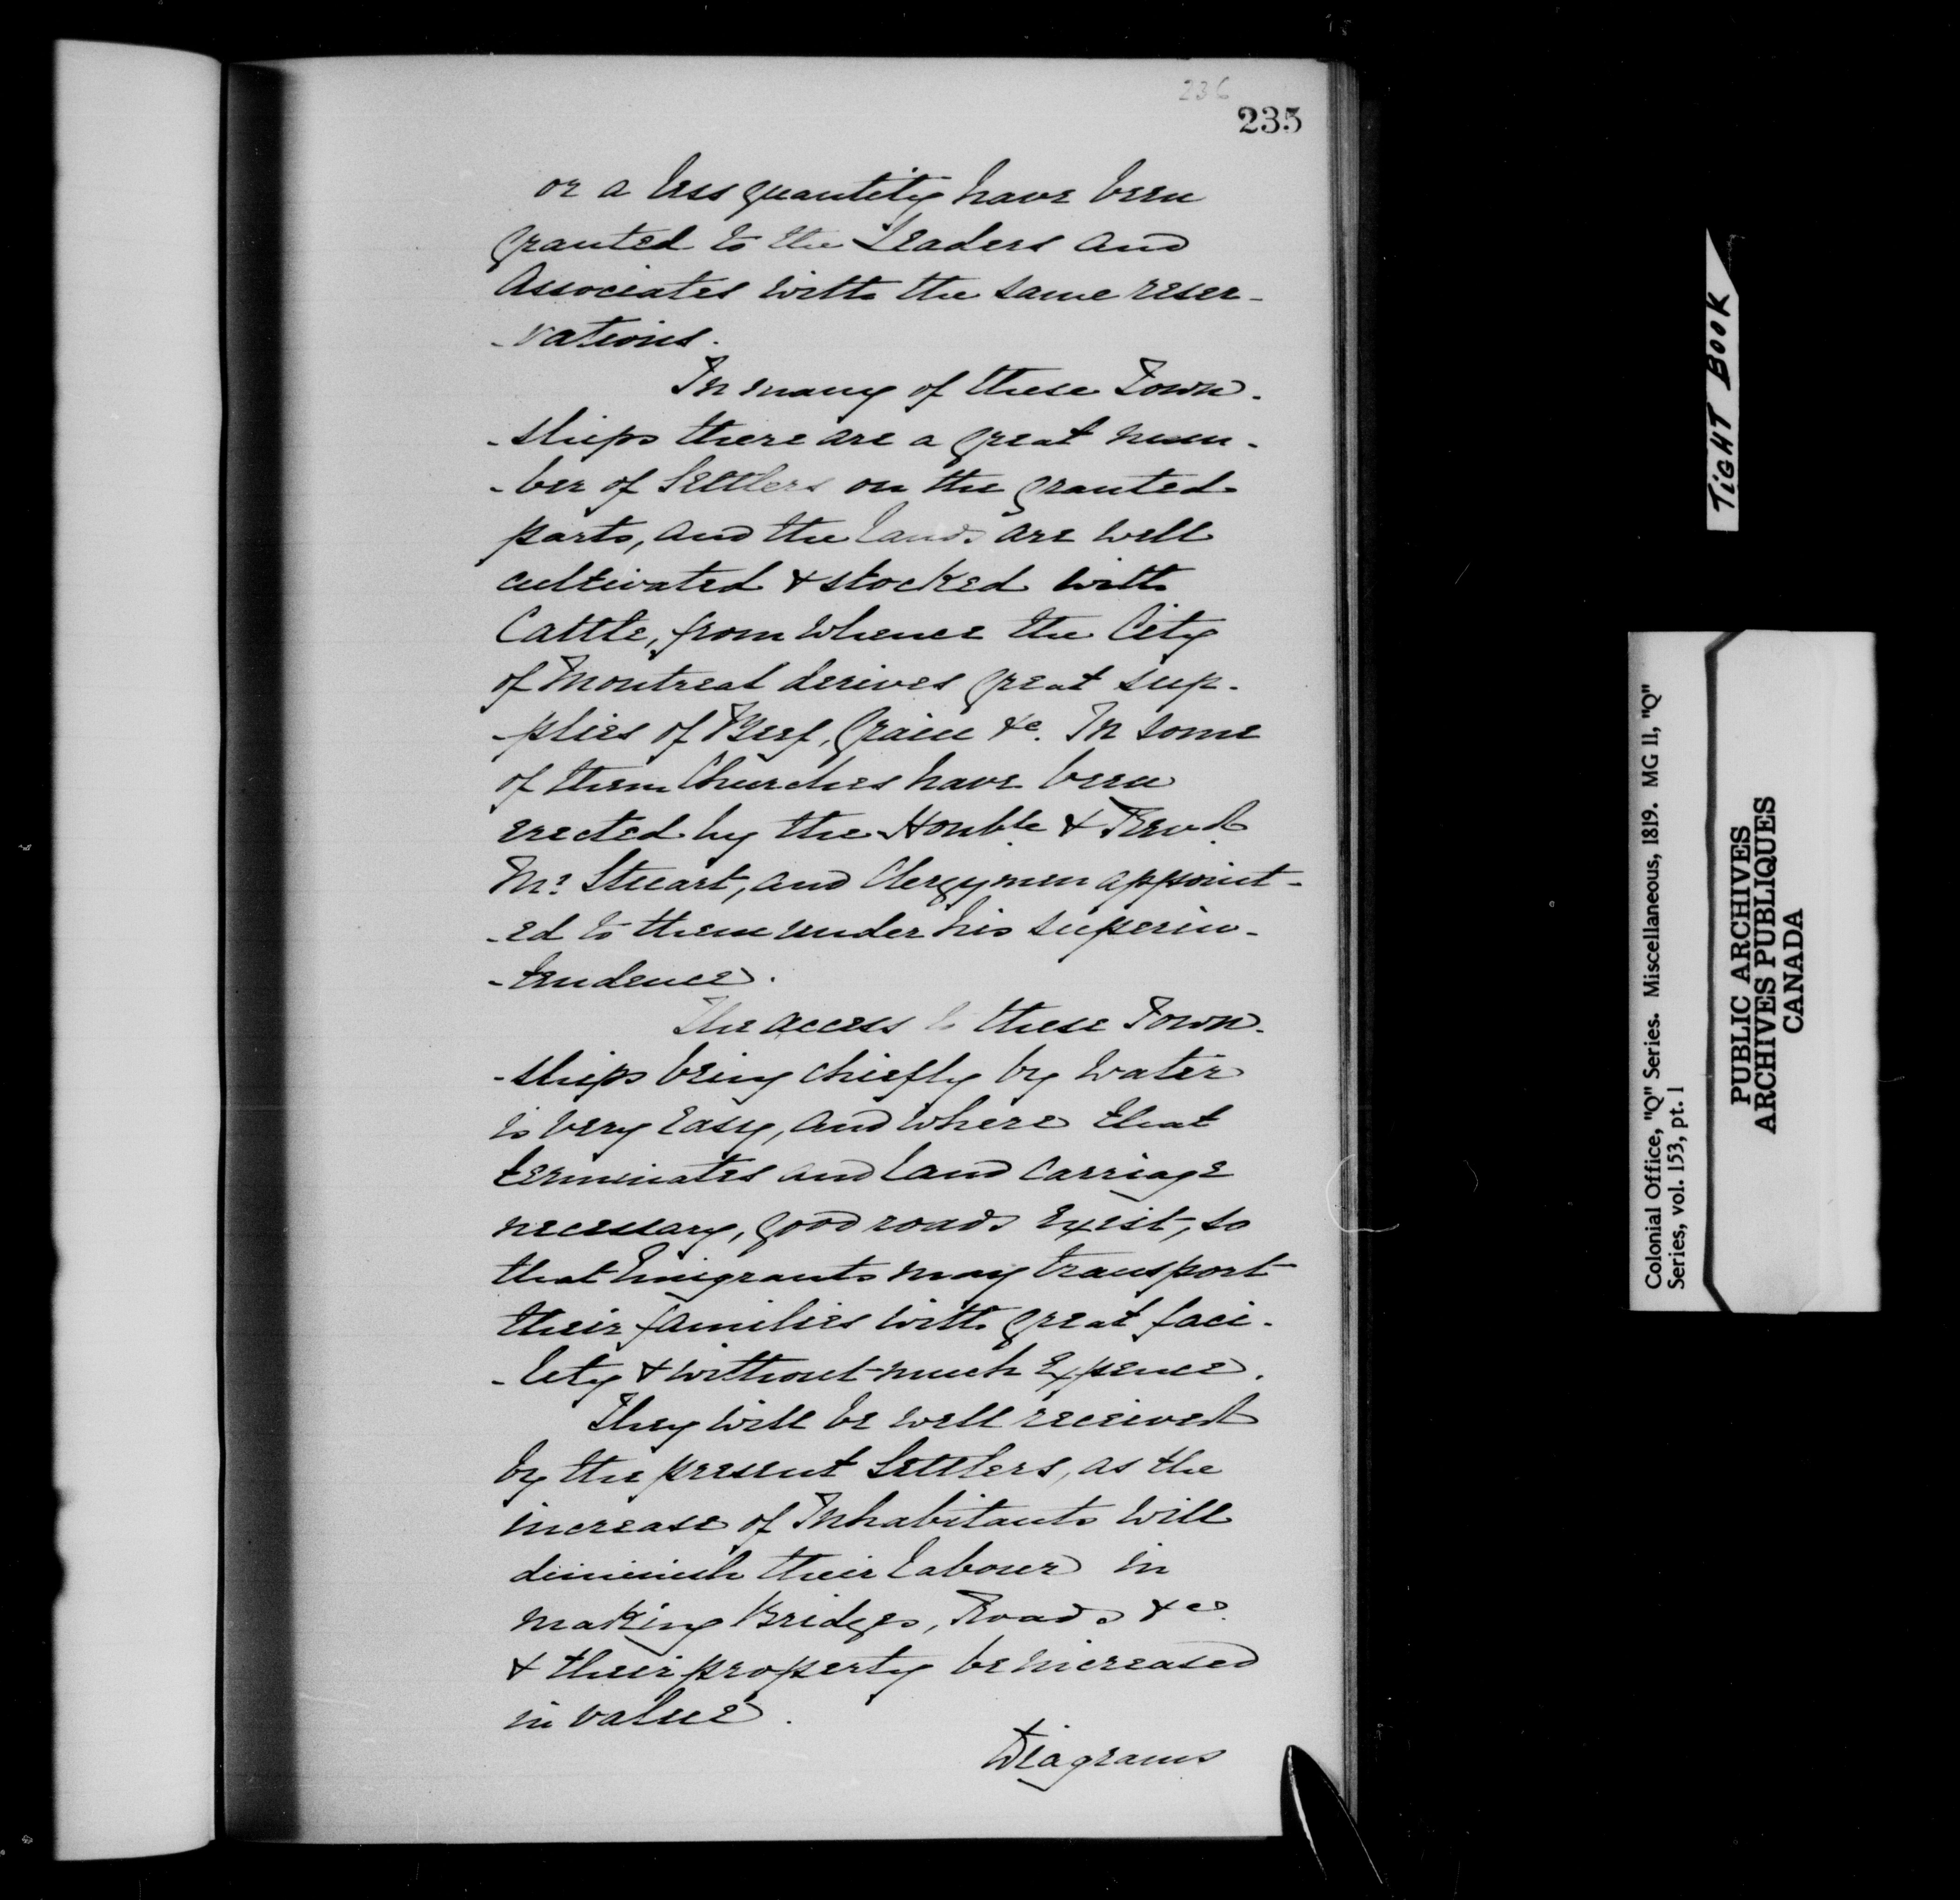 236
235
or a less quantity have been
granted to the Leaders and
Associates with the same reser-
-vations.
In many of these Town-
-ships there are a great num-
-ber of Settlers on the granted
parts, and the lands are well
cultivated & stocked with
Cattle, from whence the City
of Montreal derives great sup-
-plies of Beef, Grain &c. In some
of them Churches have been
erected by the Honble & Revd.
Mr. Stuart, and Clergymen appoint-
-ed to them under his superin-
-tendence.
The access to these Town-
-ships being chiefly by water
is very easy, and where that
terminates and land carriage
necessary, good roads exist, so
that Emigrants may transport
their families with great faci-
-lity & without much expence.
They will be well received
by the present Settlers, as the
increase of Inhabitants will
diminish their labour in
making Bridges, Roads &ca.
& their property be increased
in value.
Diagrams
TIGHT BOOK
Colonial Office, "Q" Series. Miscellaneous, 1819. MG 11, "Q"
Series, vol. 153, pt. 1
PUBLIC ARCHIVES
ARCHIVES PUBLIQUES
CANADA